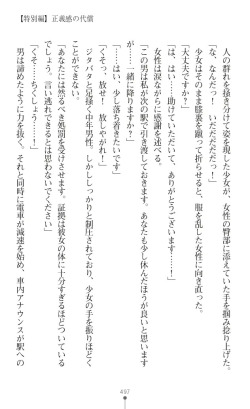 【特別編】正義感の代償
人の群れを掻き分けて姿を現した少女が、女性の臀部に添えていた手を掴み捻り上げた。
「な、なんだっ！　いだだだだだっ！」
少女はそのまま膝裏を蹴って跪かせると、服を乱した女性に向き直った。
「大丈夫ですか？」
「は、はい……！　助けていただいて、ありがとうございます……！」
女性は涙ながらに感謝を述べる。
「この男は私が次の駅で引き渡しておきます。あなたも少し休んだほうが良いと思います
が、一緒に降りますか？」
「……はい、少し落ち着きたいです」
「くそっ、放せ！　放しやがれ！」
ジタバタと足掻く中年男性。しかししっかりと制圧されており、少女の手を振りほどく
ことができない。
「あなたには然るべき処罰を受けさせます。証拠は彼女の体に十分すぎるほどついている
でしょう。言い逃れできるとは思わないでください」
「くそっ……ちくしょう……！」
男は諦めたように力を抜く。それと同時に電車が減速を始め、車内アナウンスが駅への
497